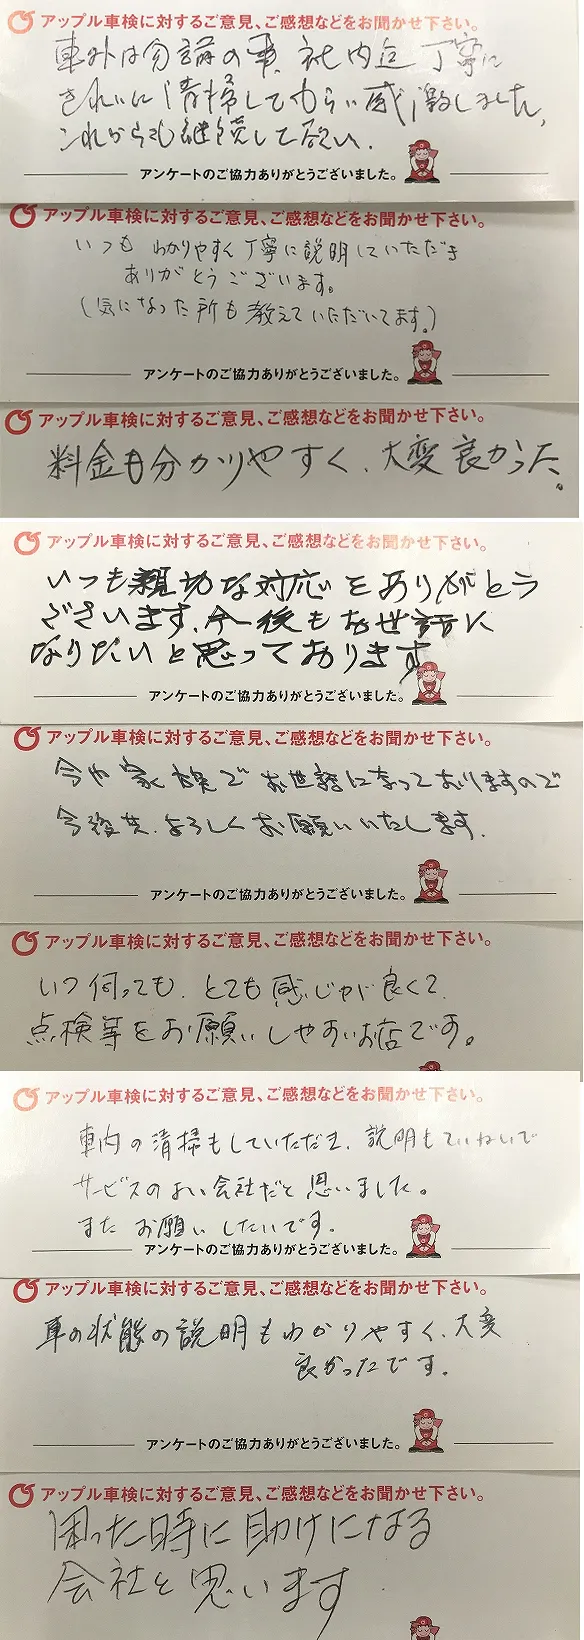 アップル車検に対するご意見、ご感想などをお聞かせ下さい。
車外は勿論の事、社内迄丁寧に
きれいに清掃してもらい感激しました。
これからも継続して欲しい。
アンケートのご協力ありがとうございました。
アップル車検に対するご意見、ご感想などをお聞かせ下さい。
いつも わかりやすく丁寧に説明していただき
ありがとうございます。
(気になった所も教えていただいてます。)
アンケートのご協力ありがとうございました。
アップル車検に対するご意見、ご感想などをお聞かせ下さい。
料金も分かりやすく、大変良かった。
アップル車検に対するご意見、ご感想などをお聞かせ下さい。
いつも親切な対応をありがとう
ございます。今後もお世話に
なりたいと思っております
アンケートのご協力ありがとうございました。
アップル車検に対するご意見、ご感想などをお聞かせ下さい。
今や家族でお世話になっておりますので
今後共、よろしくお願いいたします。
アンケートのご協力ありがとうございました。
アップル車検に対するご意見、ご感想などをお聞かせ下さい。
いつ伺っても、とても感じが良くて、
点検等をお願いしやすいお店です。
アップル車検に対するご意見、ご感想などをお聞かせ下さい。
車内の清掃もしていただき、説明もていねいで
サービスのよい会社だと思いました。
また お願いしたいです。
アンケートのご協力ありがとうございました。
アップル車検に対するご意見、ご感想などをお聞かせ下さい。
車の状態の説明もわかりやすく、大変
良かったです。
アンケートのご協力ありがとうございました。
アップル車検に対するご意見、ご感想などをお聞かせ下さい。
困った時に助けになる
会社と思います